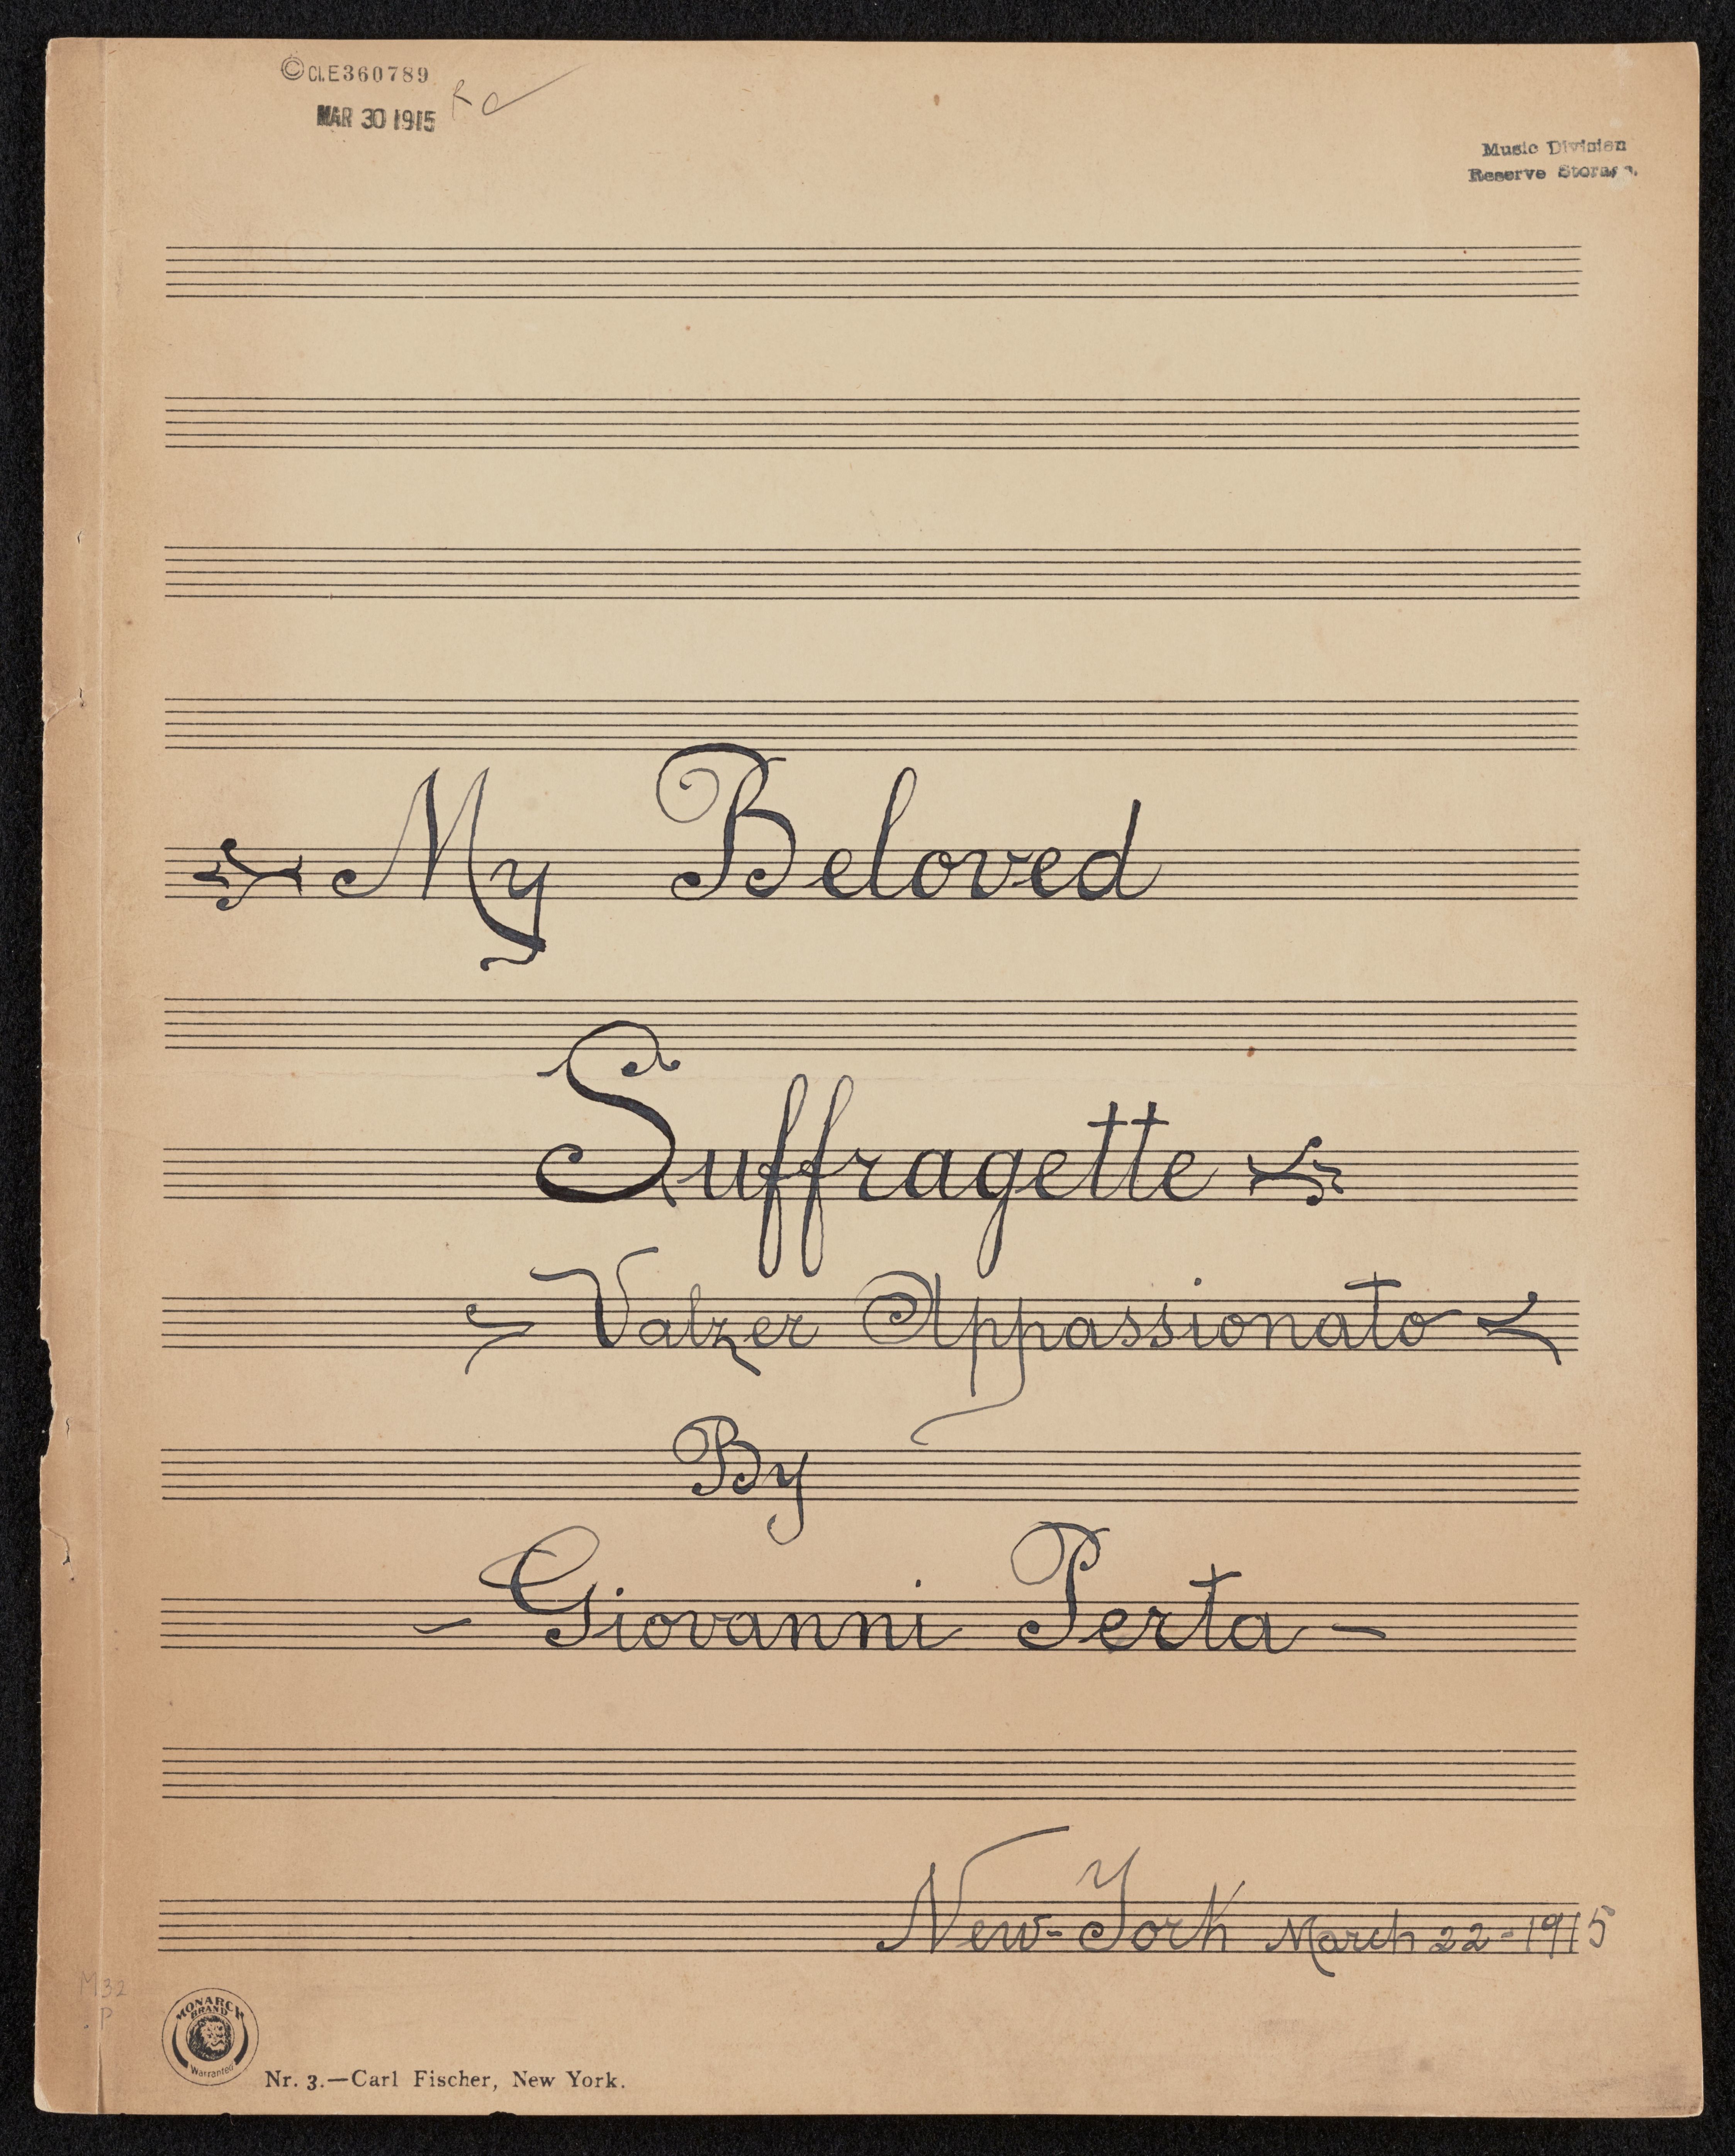 © Cl.E360789
MAR 30 1915
Music Division
Reserve Storage.
My Beloved
Suffragette
Valzer Appassionato
By
- Giovanni Perta -
New-York March 22-1915
M32
.P
MONARCH
BRAND
Warranted
Nr. 3.—Carl Fischer, New York.